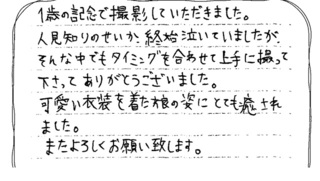 1歳の記念で撮影していただきました。
人見知りのせいか、終始泣いていましたが、
そんな中でもタイミングを合わせて上手に撮って
下さって ありがとうございました。
可愛い衣装を着た娘の姿にとても癒され
ました。
またよろしくお願い致します。